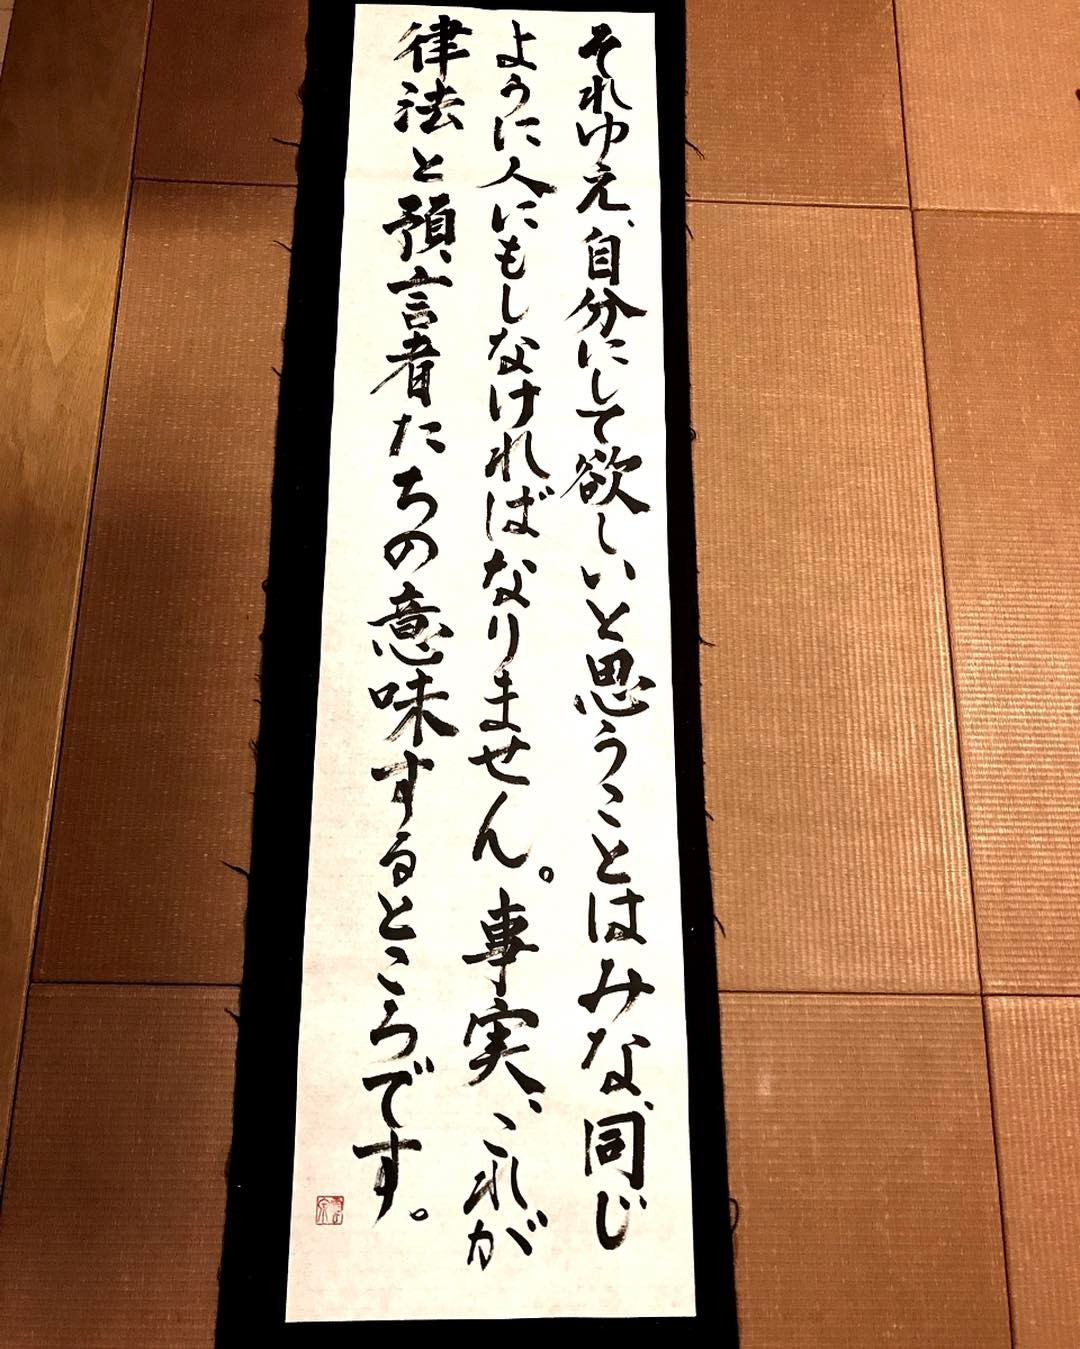 それゆえ、自分にして欲しいと思うことはみな、同じ
ように人にもしなければなりません。事実、これが
律法と預言者たちの意味するところです。